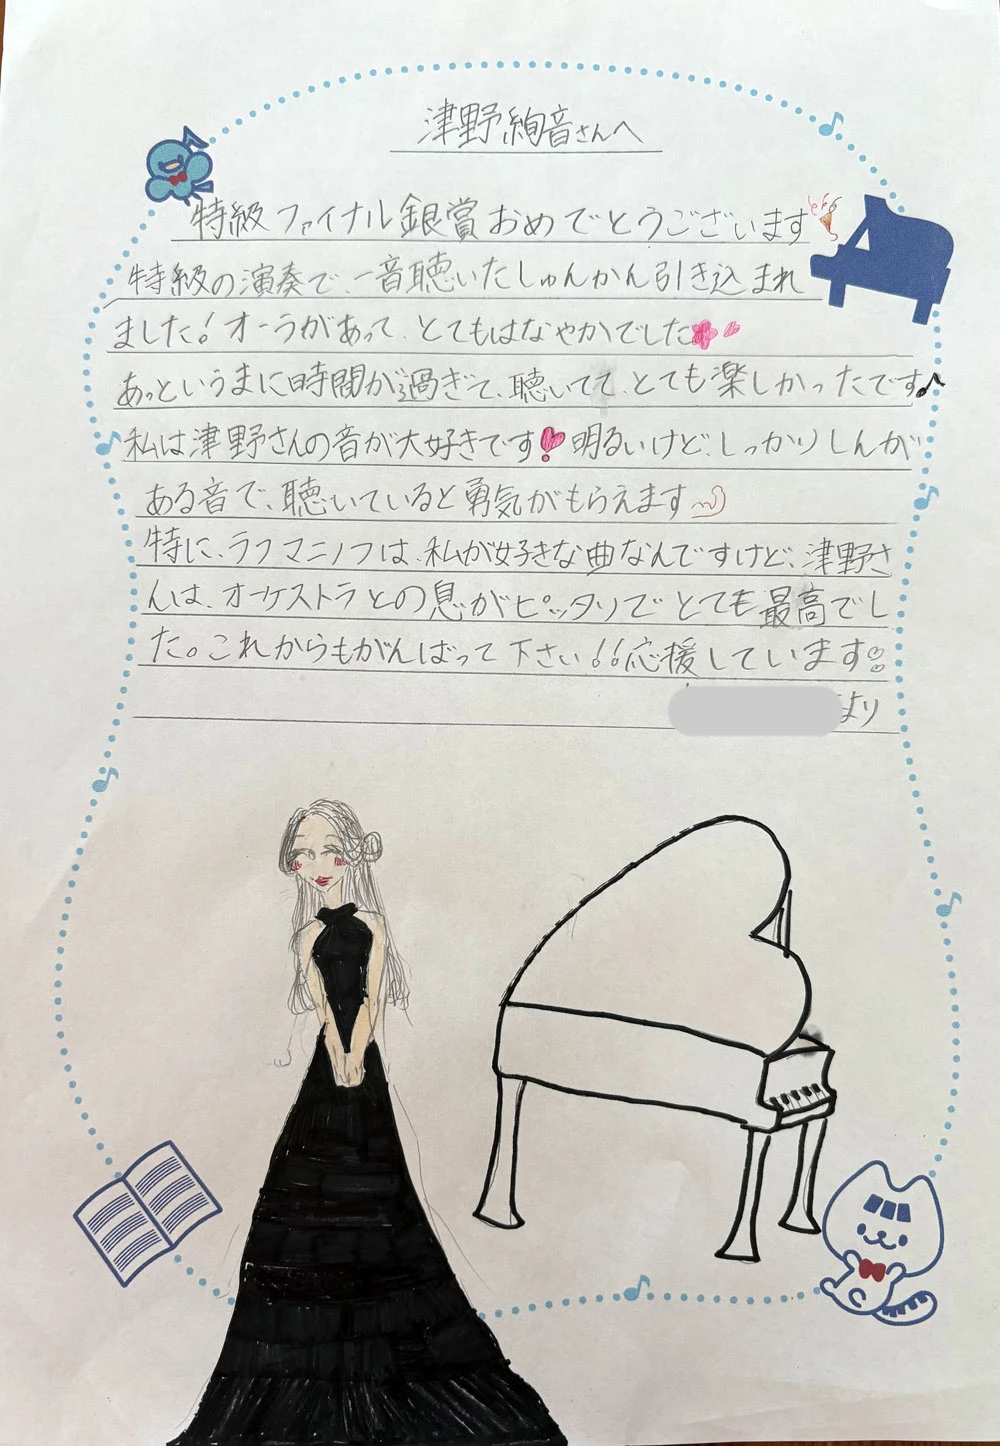 津野絢音さんへ
特級ファイナル銀賞おめでとうございます
特級の演奏で、一音聴いたしゅんかん引き込まれ
ました！オーラがあって、とてもはなやかでした
あっというまに時間が過ぎて、聴いてて、とても楽しかったです♪
私は津野さんの音が大好きです！明るいけど、しっかりしんが
ある音で、聴いていると勇気がもらえます
特に、ラフマニノフは、私が好きな曲なんですけど、津野さ
んは、オーケストラとの息がピッタリでとても最高でし
た。これからもがんばって下さい！！応援しています
より